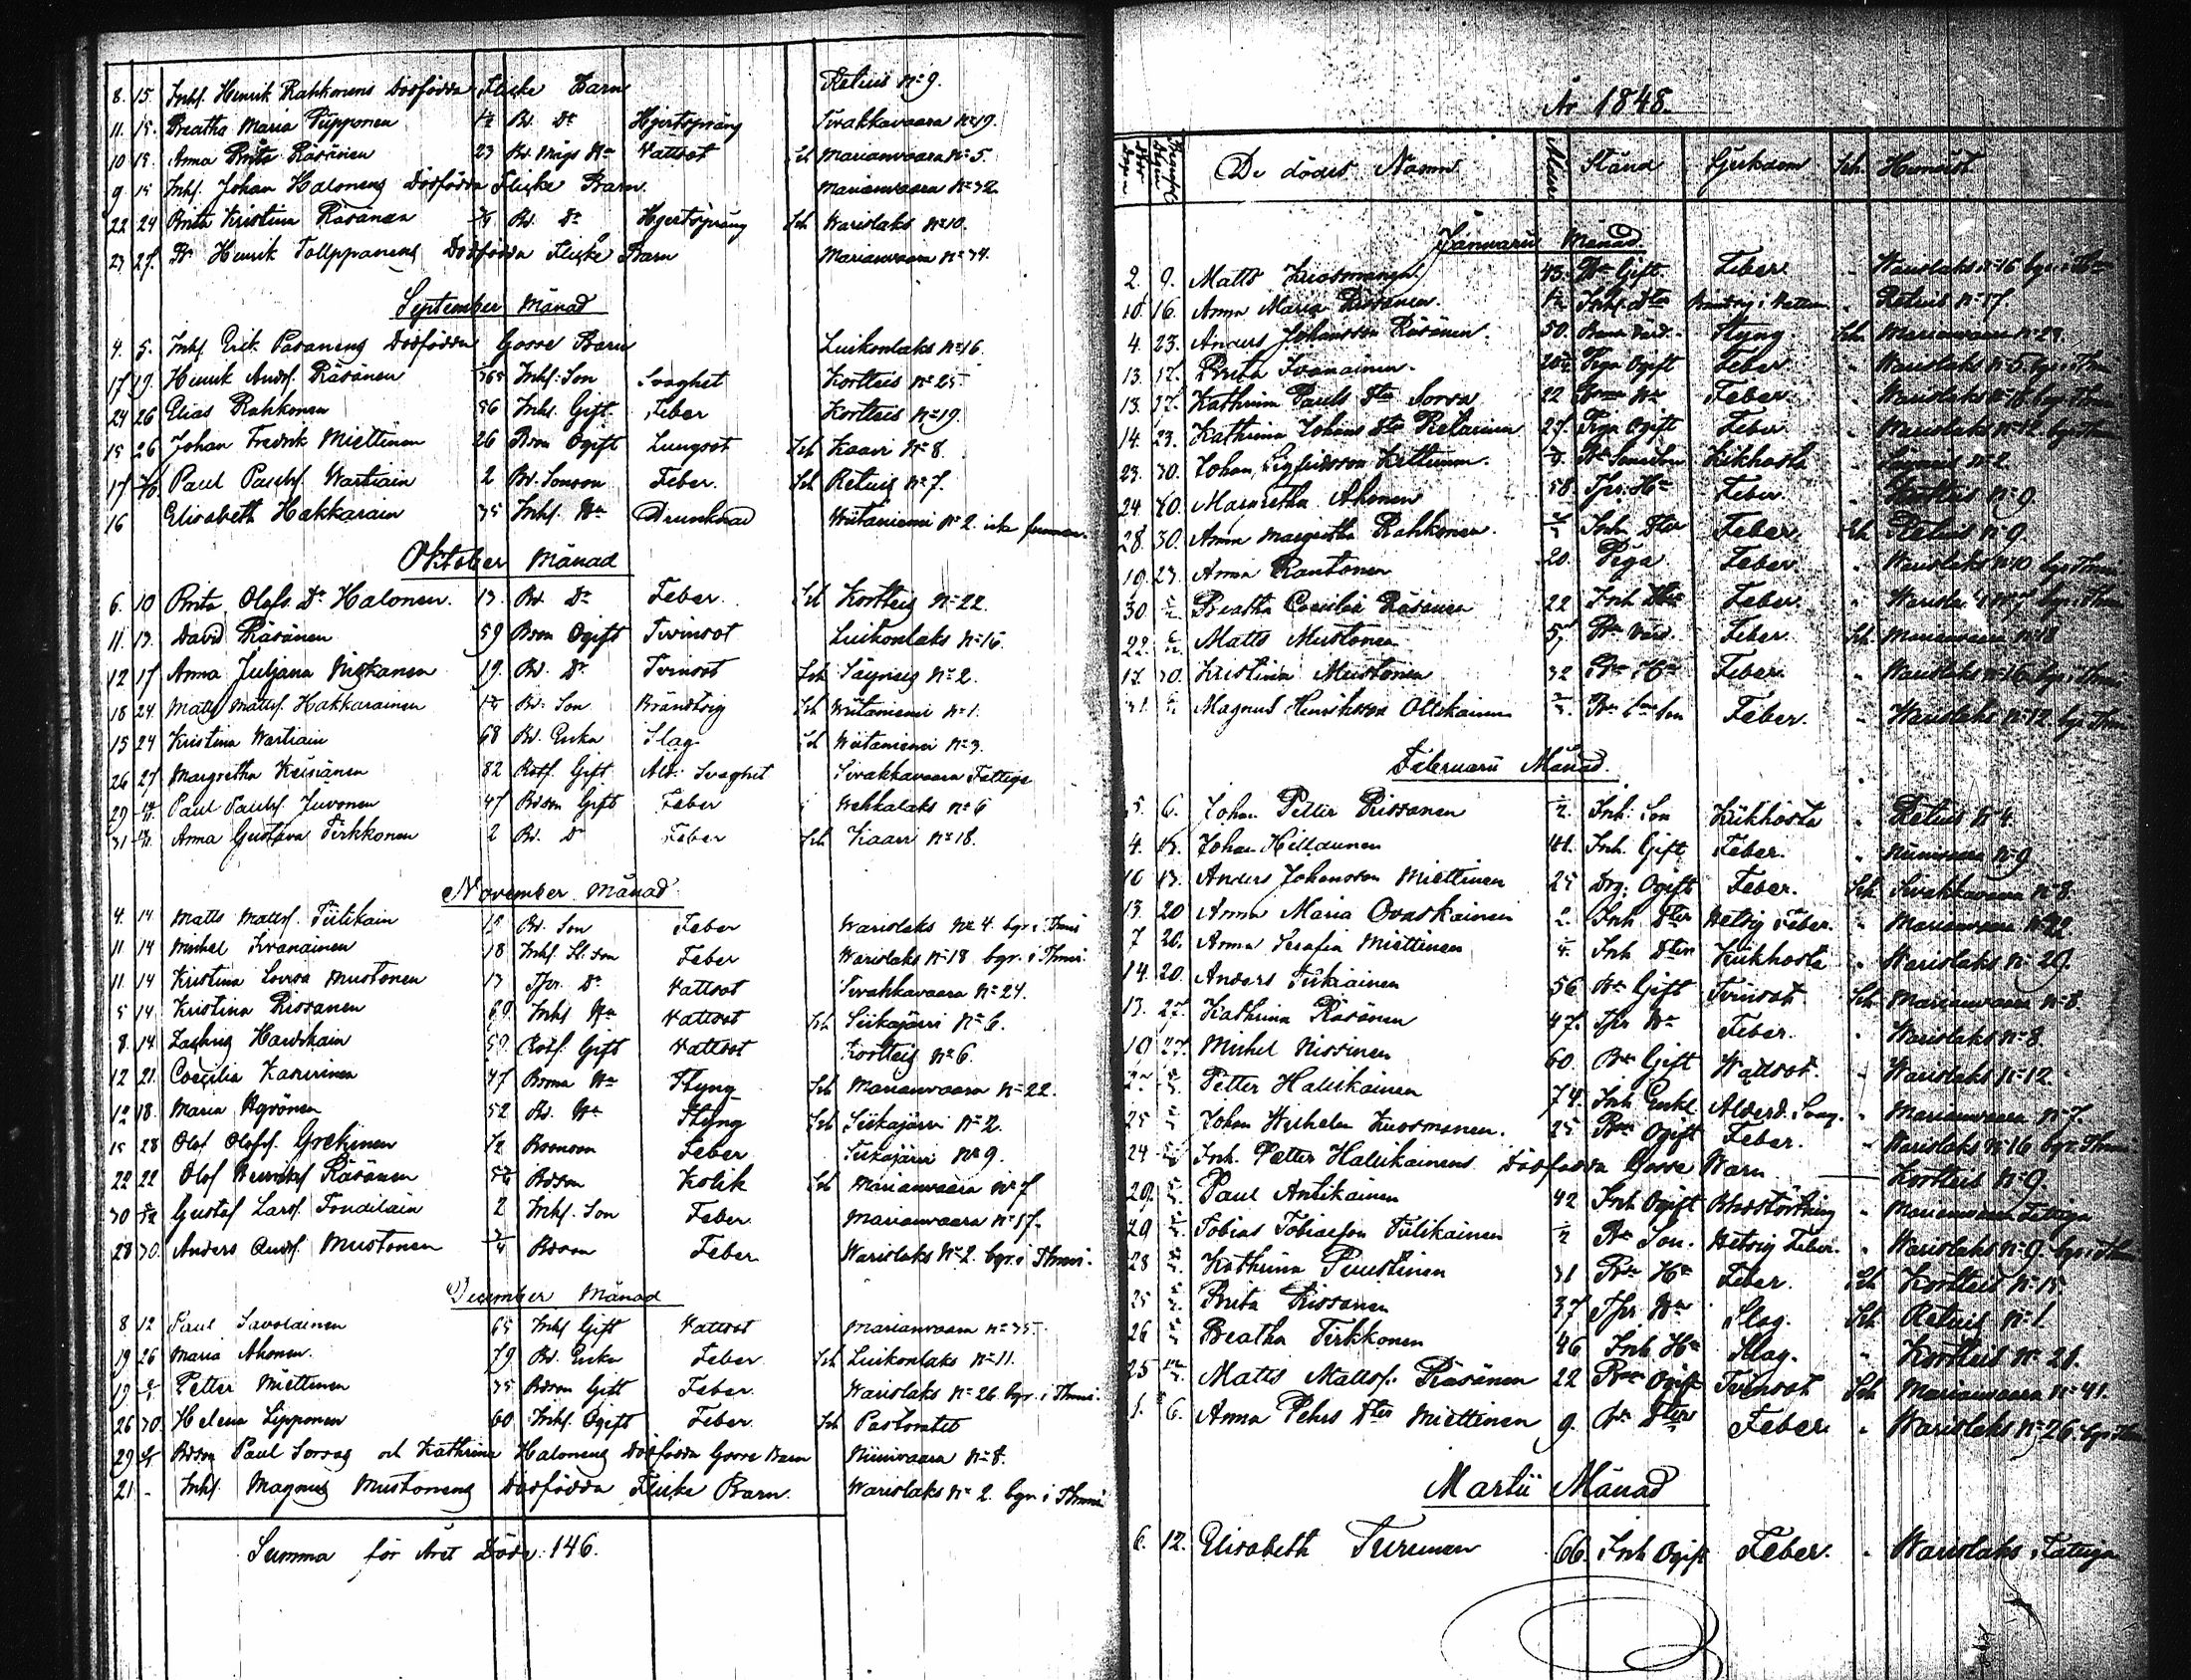 8. 15. Inhs. Henrik Rahkonens Dödfödda Flicke Barn Retuis No 9.
11. 15. Beatha Maria Pupponen 1/2 Bd. Dr Hjertsprång Sivakkavaara No 19.
10 15. Anna Brita Räsänen 23 Bd. Mågs Hu Vattsot Sch Marianvaara No 5.
9 15 Inhs. Johan Halonens Dödfödda Flicke Barn. Marianvaara No 32.
22 24 Brita Kristina Räsänen Bd. Dr Hjertsprång Sch Warislaks No 10.
23 27. Bd Henrik Tolppanens Dödfödda Flicke Barn Marianvaara No 34.
September Månad
4. 5. Inhs. Erik Pasanens Dödfödda Gosse Barn Luikonlaks No 16.
17 19. Henrik Andsf. Räsänen Inhs. Son Svaghet Kortteis No 25.
24 26 Elias Rahkonen 56 Inhs. Gift. Feber Kortteis No 19.
15 26 Johan Fredrik Miettinen 26 Bson Ogift Lungsot Sch Kaavi No 8.
17 Paul Paulsf. Wartiain 2 Bd. Sonson Feber. Sch Retuis No 7.
16 Elisabeth Hakkarain 35 Inhs. Hu Drunknad Wiitaniemi No 2. icke funnen.
Oktober Månad
6. 10 Brita Olofs Dr Halonen. 13. Bd. Dr Feber. Sch Kortteis No 22.
11. 13. David Räsänen 59 Bson Ogift Tvinsot Luikonlaks No 16.
12 17 Anna Juljana Niskanen 19. Bd. Dr Tvinsot Sch Säyneis No 2.
18 24. Matts Mattsf. Hakkarainen Bd. Son Brändtsig Sch Wiitaniemi No 1.
15 24 Kristina Wartiain 68 Bd. Enka Slag Sch Wiitaniemi No 3.
26 27 Margretha Keinänen 82 Rotf. Gift Ald. Svaghet Sivakkavaara Fattiga
29 Paul Paulsf. Juvonen 47 Bdson Gift Feber Wehkalaks No 6
31 Anna Gustava Tirkkonen 2 Bd. Dr Feber Sch Kaavi No 18.
November Månad
4. 14 Matts Mattsf. Tiilikain Bd. Son Feber Warislaks No 4. bgr. i Thmi
11 14 Mickel Ivanainen 18 Inhs. St. Son Feber Warislaks No 18 bgr. i Thmi.
11 14 Kristina Lovisa Mustonen 13 Tpr. Dr Vattsot Sivakkavaara No 24.
5 14 Kristina Rissanen 69. Inhs Hu Vattsot Sch Siikajärvi No 6.
8. 14. Zachris Hauskain 59. Rotf. Gift Vattsot Kortteis No 6.
12 21. Coecilia Kaurinen 47 Bonna Hu Styng Sch Marianvaara No 22.
12 18. Maria Hyvönen 52 Bd. Hu Styng Sch Siikajärvi No 2.
15 28 Olof Olofsf. Grekinen 1/2 Bsonson Feber Siikajärvi No 9.
22 22 Olof Henriksf Räsänen Bdson Kolik Sch Marianvaara No 7
30 Gustaf Larsf. Tondilain 2 Inhs. Son Feber Marianvaara No 17.
28 30. Anders Andsf. Mustonen Bdson Feber Warislaks No 2. bgr. i Thmi.
December Månad
8. 12 Paul Savolainen 65 Inhs Gift Vattsot Marianvaara No 35.
19 26 Maria Ahonen. 79 Bd. Enka Feber. Sch Luikonlaks No 11.
19 Petter Miettinen 35 Bdson Gift Feber. Warislaks No 26. bgr. i Thmi.
26 30. Helena Lipponen 60 Inhs. Ogift Feber. Sch Pastoratet
29 Bdson Paul Sorsas och Kathrina Halonens Dödfödda Gosse Barn Niinivaara No 8.
21 - Inhs. Magnus Mustonens Dödfödda Flicke Barn. Warislaks No 2. bgr i Thmi
Summa för Året Döde: 146.
År 1848.
De dödes Namn Ålder Stånd Sjukdom Sch. Hemvist
Januarii Månad
2. 9. Matts Kuosmanen 43. Bd Gift Feber Warislaks No 16 bgr. i
10. 16. Anna Maria Rissanen. Inhs. Dter i Vatten Retuis No 17
4. 23. Anders Johansson Räsänen. 50. Styng Sch. Marianvaara No 29.
13. 17. Brita Ivanainen. Piga Ogift Feber Warislaks No 5 bgr. i Thmi
13. 17. Kathrina Pauls Dter Sorsa 22 Feber. Warislaks No 8 bgr. Thmi
14. 23. Kathrina Johans Dter Pielarinen 27. Piga Ogift Feber Warislaks No 12 bgr. Thmi
23. 30. Johan Sigfridsson Kettunen. Kikhosta Säyneis No 2.
24 30. Margretha Ahonen 58 Tpr. Hu Feber. Kortteis No 9
28. 30. Anna Margretha Rahkonen. Inh Dter Feber Sch Retuis No 9.
19. 23. Anna Rautonen 20. Piga Feber Warislaks No 10 bgr. Thmi
30 Beatha Coecilia Räsänen 22 Inh. Feber. bgr. Thmi
22. Matts Mustonen 57 Bd Värd. Feber. Sch. Marianvaara No 18
17. 30. Kristina Mustonen 32 Bd Hu Feber. Warislaks No 16 bgr. i Thmi
31. Magnus Henriksson Ollikainen Feber. Warislaks No 12 bgr Thmi
Februarii Månad.
5. 6. Johan Petter Rissanen Inh. Son Kikhosta Retuis No 4.
4. 13. Johan Hillainen 41. Inh. Gift Feber. Niinivaara No 9
10 13. Anders Johansson Miettinen 25 Drg. Ogift Feber. Sch. Sivakkavaara No 8.
13. 20 Anna Maria Ovaskainen 2. Inh Dter Hetsig Feber. Marianvaara No 22
7 20. Anna Serafia Miettinen Inh Dter Kikhosta Warislaks No 29.
14. 20. Anders Tiikkainen 56 Bd Gift Tvinsot Sch. Marianvaara No 8.
13. 27. Kathrina Räsänen 47. Tpr Hu Feber. Warislaks No 8.
19 27. Michel Nissinen 60. Bd Gift Wattsot. Warislaks No 12.
Petter Halikainen 74. Inh Enkl. Alderd. Svag. Marianvaara No 7.
25 Johan Wilhelm Kuosmanen. 25 Ogift Feber. Warislaks No 16 bgr. Thmi
24 Inh. Petter Halikainens Dödfödda Gosse Barn Kortteis No 9.
29. Paul Antikainen 42 Inh Ogift Blodstörtning Marianvaara Fattiga
29 Tobias Tobiasson Tiilikainen Bd Son. Hetsig Feber. Warislaks No 9. bgr. i Thmi
28 Kathrina Puustinen 31 Bd Hu Feber. Sch Kortteis No 15
25 Brita Rissanen 37 Tpr Hu Slag. Sch. Retuis No 1.
26 Beatha Tirkkonen 46 Inh. Hu Slag. Kortteis No 21.
25 Matts Mattsf. Räsänen 22 Ogift Tvinsot Sch Marianvaara No 41.
1. 6. Anna Pehrs Dter Miettinen 9. Bd Dter Feber. Warislaks No 26. bgr. Thmi
Martii Månad
6. 12. Elisabeth Turunen 66. Inh Ogift Feber. Warislaks Fattiga